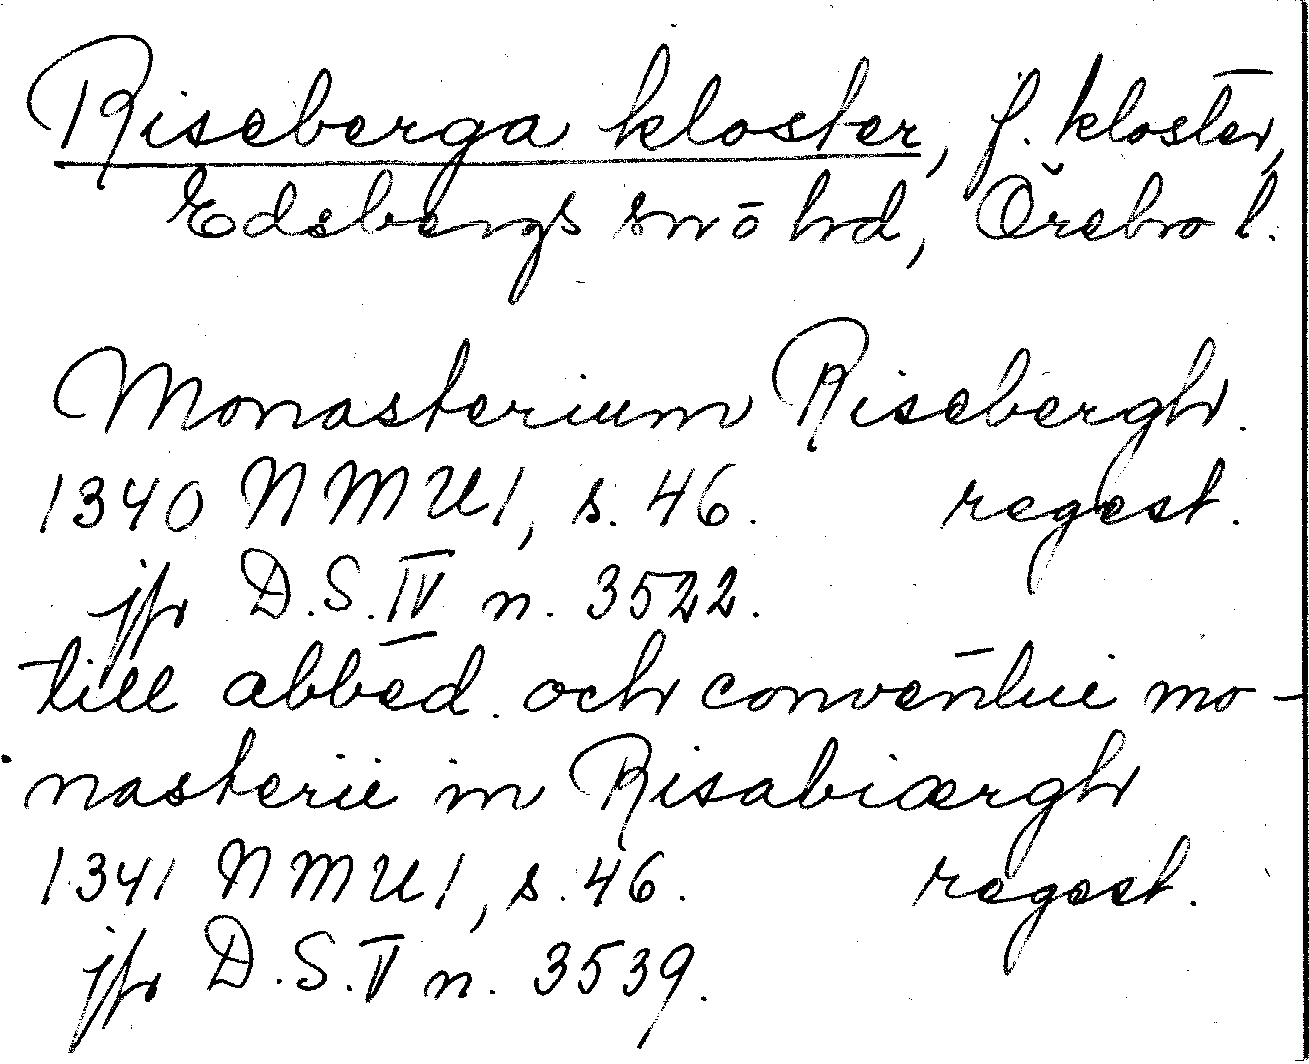 Riseberga kloster, f. kloster,
Edsbergs sn ö hd, Örebro l.
Monasterium Risebergh.
1340 NMU1, s. 46. regest.
jfr D.S. IV n. 3522.
till abbed. och conventui mo-
nasterii in Risabiærgh
1341 NMU1, s. 46. regest.
jfr D.S. V n. 3539.